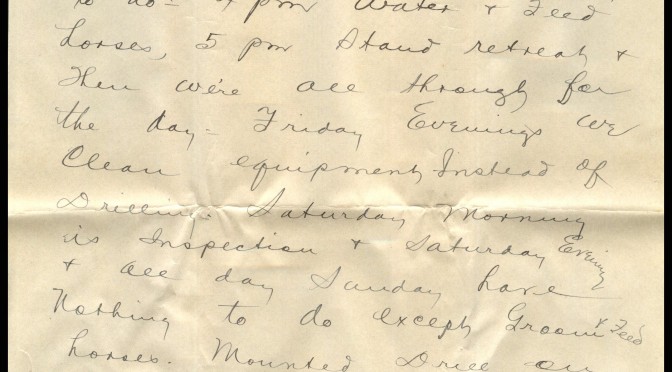 to do - 4 pm Water & Feed
horses, 5 pm Stand retreat &
Then we're all through for
the day - Friday Evenings we
Clean equipment Instead of
Drilling. Saturday Morning
is Inspection & Saturday Evening
& all day Sunday have
Nothing to do except Groom & Feed
horses. Mounted Drill on